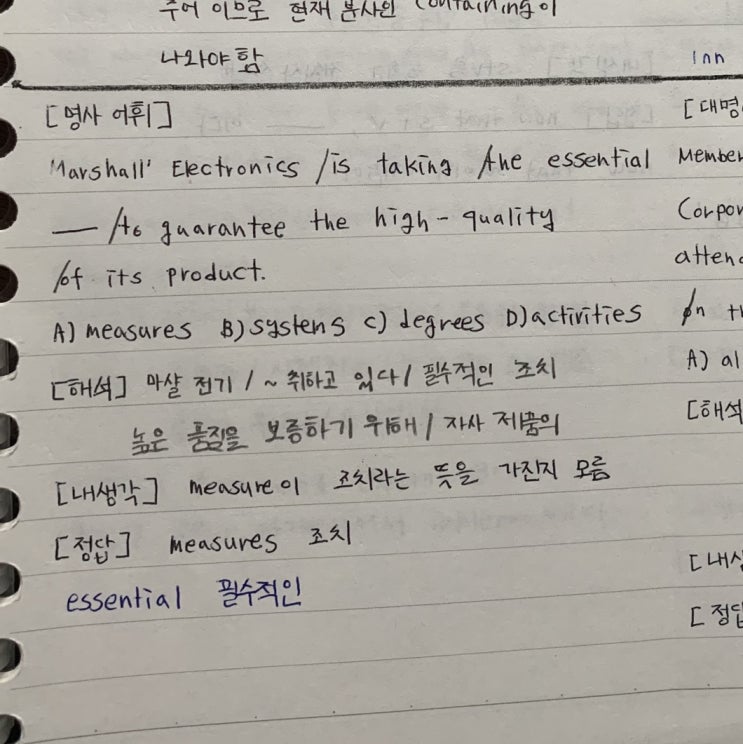 주어 이므로 현재 분사인 containing이
나와야 함
[명사 어휘]
Marshall' Electronics /is taking /the essential
— /to guarantee the high-quality
/of its product.
A) measures B) systens C) degrees D) activities
[해석] 마샬 전기 / ~ 취하고 있다 / 필수적인 조치
높은 품질을 보증하기 위해 / 자사 제품의
[내생각] measure이 조치라는 뜻을 가진지 모름
[정답] measures 조치
essential 필수적인
Inn
[대명
Member
Corpor
atten
on th
A) al
[해석
[내생
[정답